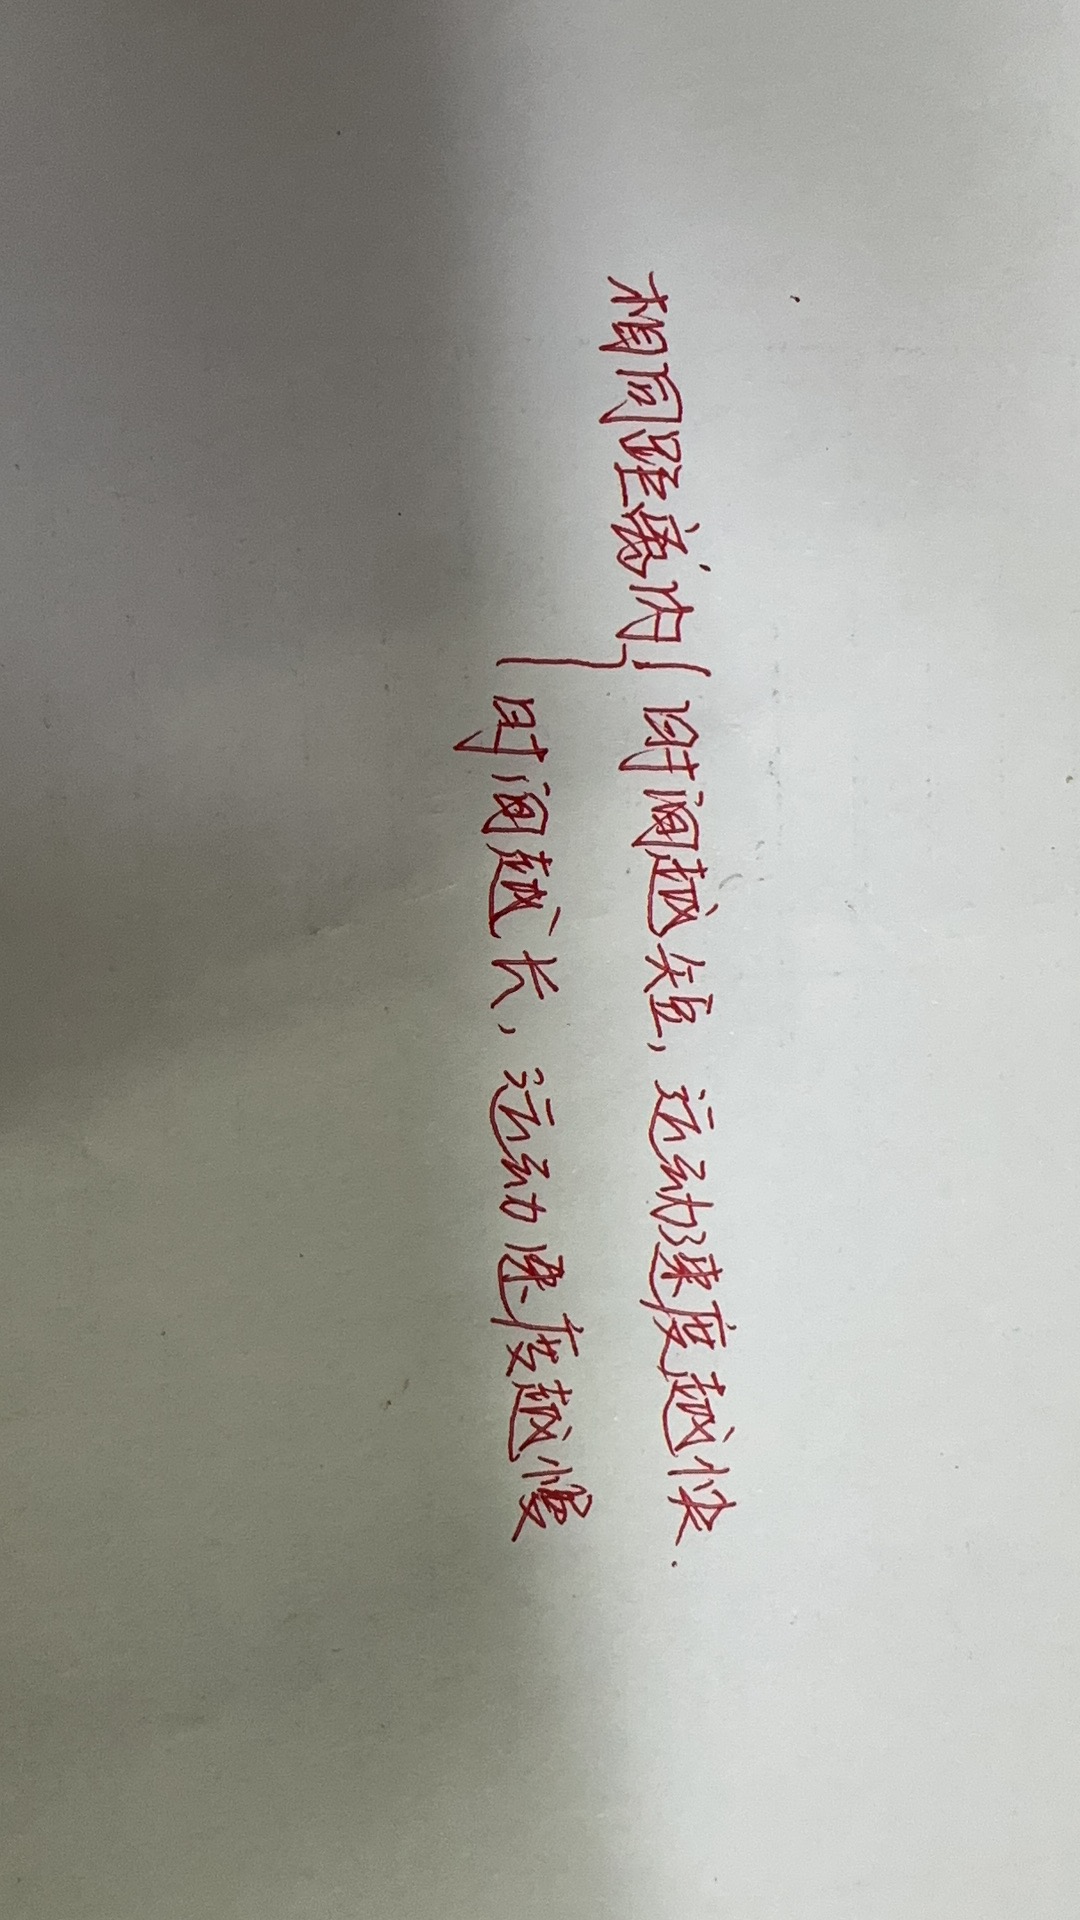 相同距离内{时间越短,运动速度越快.
时间越长,运动速度越慢